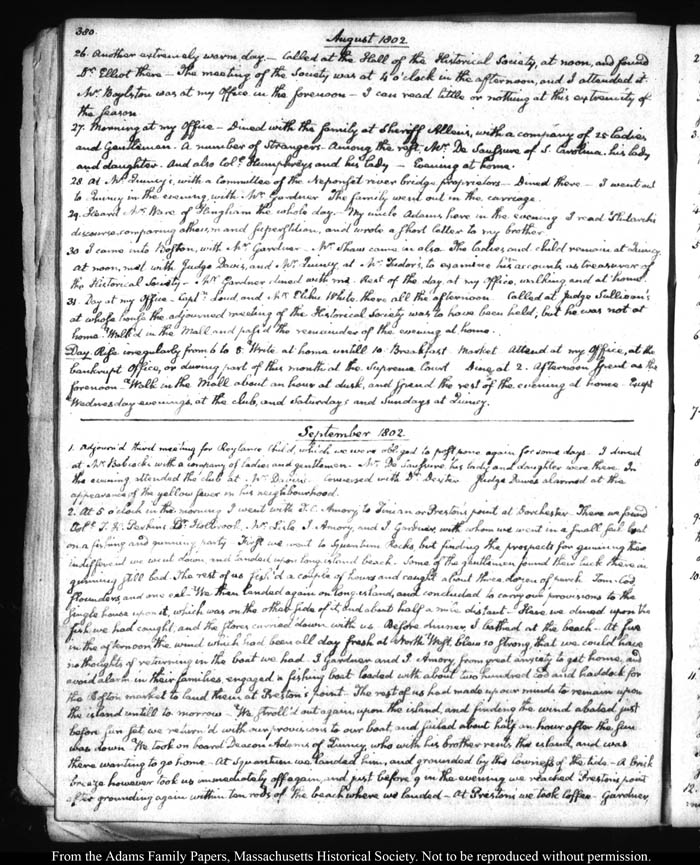 380.
August 1802
26. Another extremely warm day.— Called at the Hall of the Historical Society, at noon, and found
Dr. Elliot there — The meeting of the Society was at 4 o'clock in the afternoon, and I attended it.
Mr. Boylston was at my Office in the forenoon — I can read little or nothing at this extremity of
the season
27. Morning at my Office — Dined with the family at Sheriff Allen's, with a company of 25 ladies
and Gentlemen. A number of Strangers. Among the rest, Mr. De Saussure of S. Carolina, his lady
and daughter. And also Coll. Humphreys and his lady — Evening at home.
28. At Mr. Quincy's, with a Committee of the Neponset river bridge proprietors — Dined there — I went out
to Quincy in the evening, with Mr. Gardner The family went out in the carriage.
29. Heard Mr. Ware of Hingham the whole day. My uncle Adams here in the evening I read Plutarch's
discourse, comparing atheism and superstition, and wrote a short letter to my brother.
30. I came into Boston, with Mr. Gardner — Mr. Shaw came in also The ladies and child remain at Quincy.
At noon, met with Judge Davis, and Mr. Quincy at Mr. Tudor's, to examine his accounts as treasurer of
the Historical Society — Mr. Gardner dined with me. Rest of the day, at my Office, walking and at home.
31. Day at my Office — Capt. Loud, and Mr. Elihu White, there all the afternoon. Called at Judge Sullivan's
at whose house the adjourned meeting of the Historical Society was to have been held, but he was not at
home. Walk'd in the Mall and pass'd the remainder of the evening at home.
Day. Rise irregularly from 6 to 8. Write at home untill 10. Breakfast. Market Attend at my Office, at the
bankrupt Office, or during part of this month at the Supreme Court Dine at 2. Afternoon spent as the
forenoon Walk in the Mall about an hour at dusk, and spend the rest of the evening at home — Except
Wednesday evenings, at the club, and Saturdays and Sundays at Quincy.
September 1802
1. Adjourn'd third meeting for child, which we were obliged to postpone again for some days. I dined
at Mr. Babcock's with a company of ladies and gentlemen. Mr. De Saussure his lady and daughter were there. In
the evening attended the club at Mr. Davis's. Conversed with Dr. Dexter Judge Dawes alarmed at the
appearance of the yellow fever in his neighbourhood.
2. At 5 o'clock in the morning I went with T. C. Amory, to or Preston's point at Dorchester. There we found
T. H. Perkins Mr. J. Amory, and J Gardner, with whom we went in a small sail boat
on a fishing and gunning party First we went to Squantum Rocks, but finding the prospects for gunning there
indifferent we went down, and landed upon long island beach. Some of the gentlemen found their luck there in
gunning still bad. The rest of us fish'd a couple of hours and caught about three dozen of perch, Tom-Cod,
flounders, and one eel. We then landed again on long island, and concluded to carry our provisions to the
single house upon it, which was on the other side of it, and about half a mile distant. Here we dined upon the
fish we had caught, and the stores carried down with us. Before dinner I bathed at the beach. At five
in the afternoon the wind which had been all day fresh at North West, blew so strong, that we could have
no thoughts of returning in the boat we had. J Gardner and J. Amory, from great anxiety to get home, and
avoid alarm in their families, engaged a fishing boat loaded with about two hundred cod and haddock for
the Boston market to land them at Preston's point. The rest of us had made up our minds to remain upon
the island untill to morrow — We stroll'd out again, upon the island, and finding the wind abated just
before sun set, we return'd with our provisions to our boat, and sailed about half an hour after the sun
was down We took on board Deacon Adams of Quincy, who with his brother rents the island, and was
there wanting to go home — At Squantum we landed him, and grounded by the lowness of the tide — A brisk
breeze however took us immediately off again, and just before 9 in the evening we reached Preston's point
after grounding again within ten rods of the beach where we landed — At Preston's we took Coffee — Gardner,
From the Adams Family Papers, Massachusetts Historical Society. Not to be reproduced without permission.